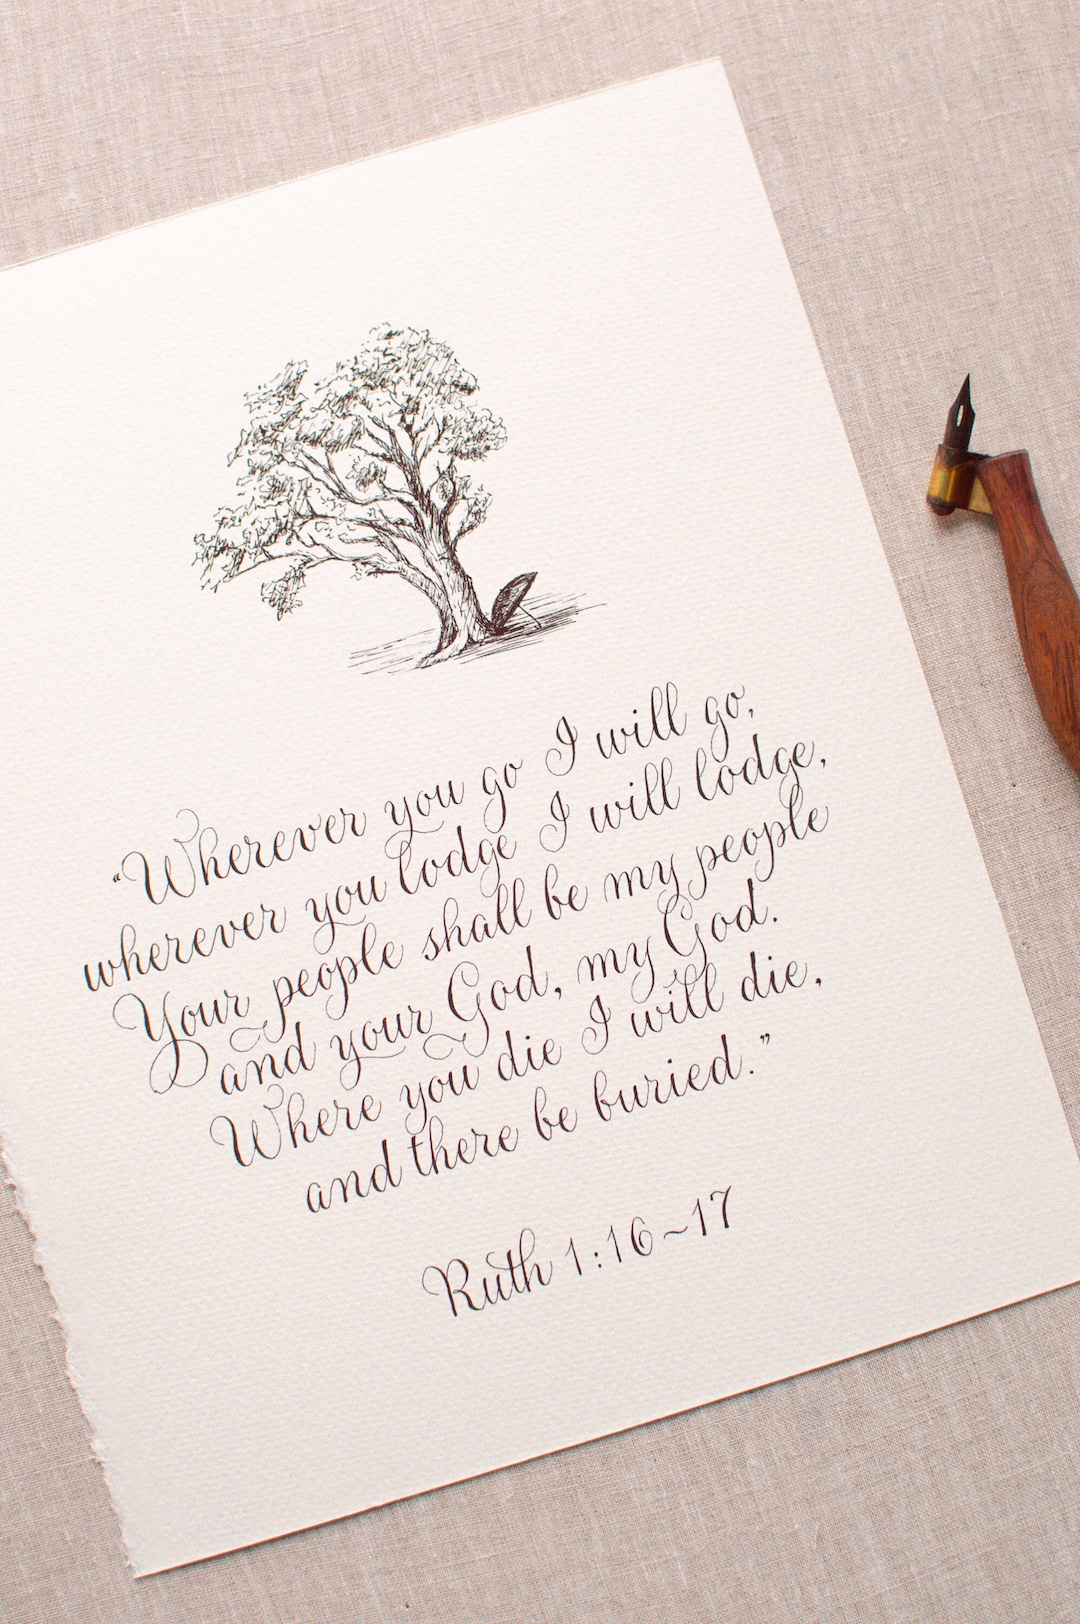 “Wherever you go I will go,
wherever you lodge I will lodge,
Your people shall be my people
and your God, my God.
Where you die I will die,
and there be buried.”
Ruth 1:16~17